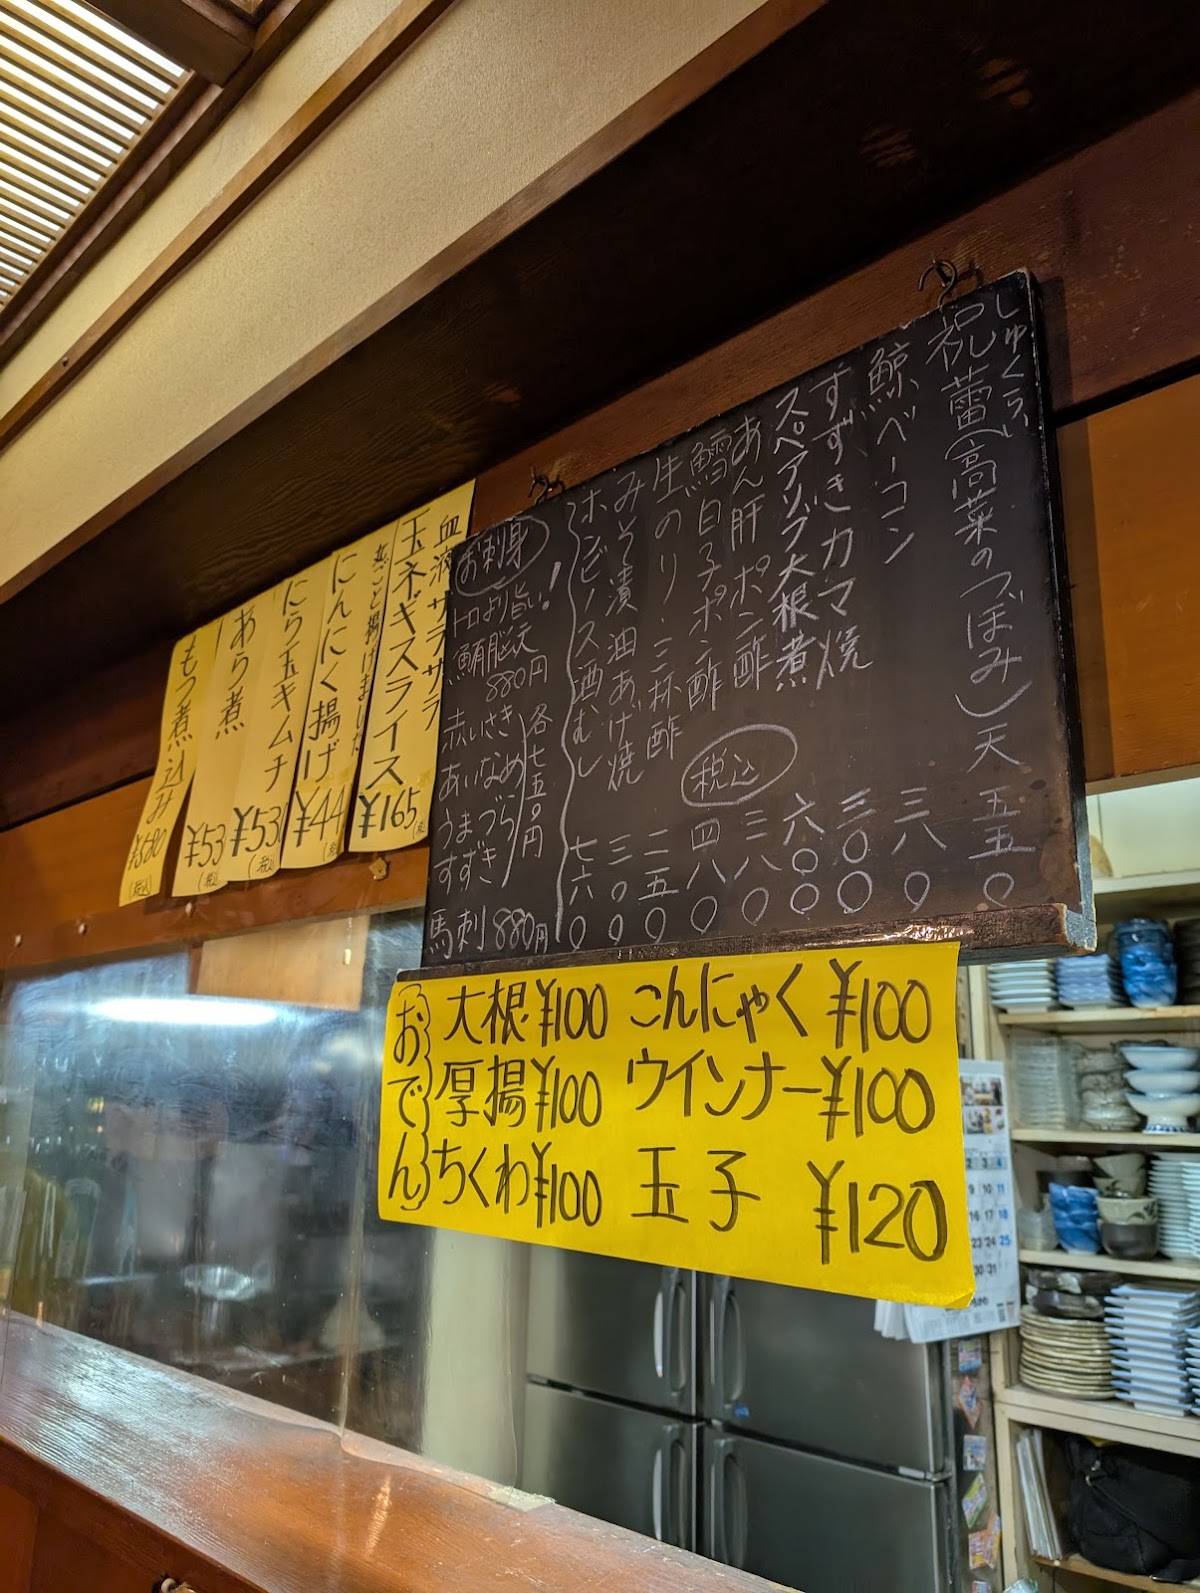 しゅくらい
祝蕾(高菜のつぼみ)天 五五〇
鯨ベーコン 三八〇
すずきカマ焼 三〇〇
スペアリブ大根煮 六〇〇
あん肝ポン酢 三八〇
鱈白子ポン酢 四八〇
生のり・三杯酢 二五〇
みそ漬油あげ焼 三〇〇
ホンビノス酒むし 七六〇
税込
お刺身
トロより旨い!
鮪脳天
880円
赤いさき
あいなめ
うまづら
すずき
各七五〇円
馬刺 880円
血液サラサラ
玉ネギスライス
¥165
丸ごと揚げました
にんにく揚げ
¥44
にら玉キムチ
¥53
(税込
あら煮
¥53
(税込
もつ煮込み
(税込)
おでん
大根 ¥100 こんにゃく ¥100
厚揚 ¥100 ウインナー ¥100
ちくわ ¥100 玉子 ¥120